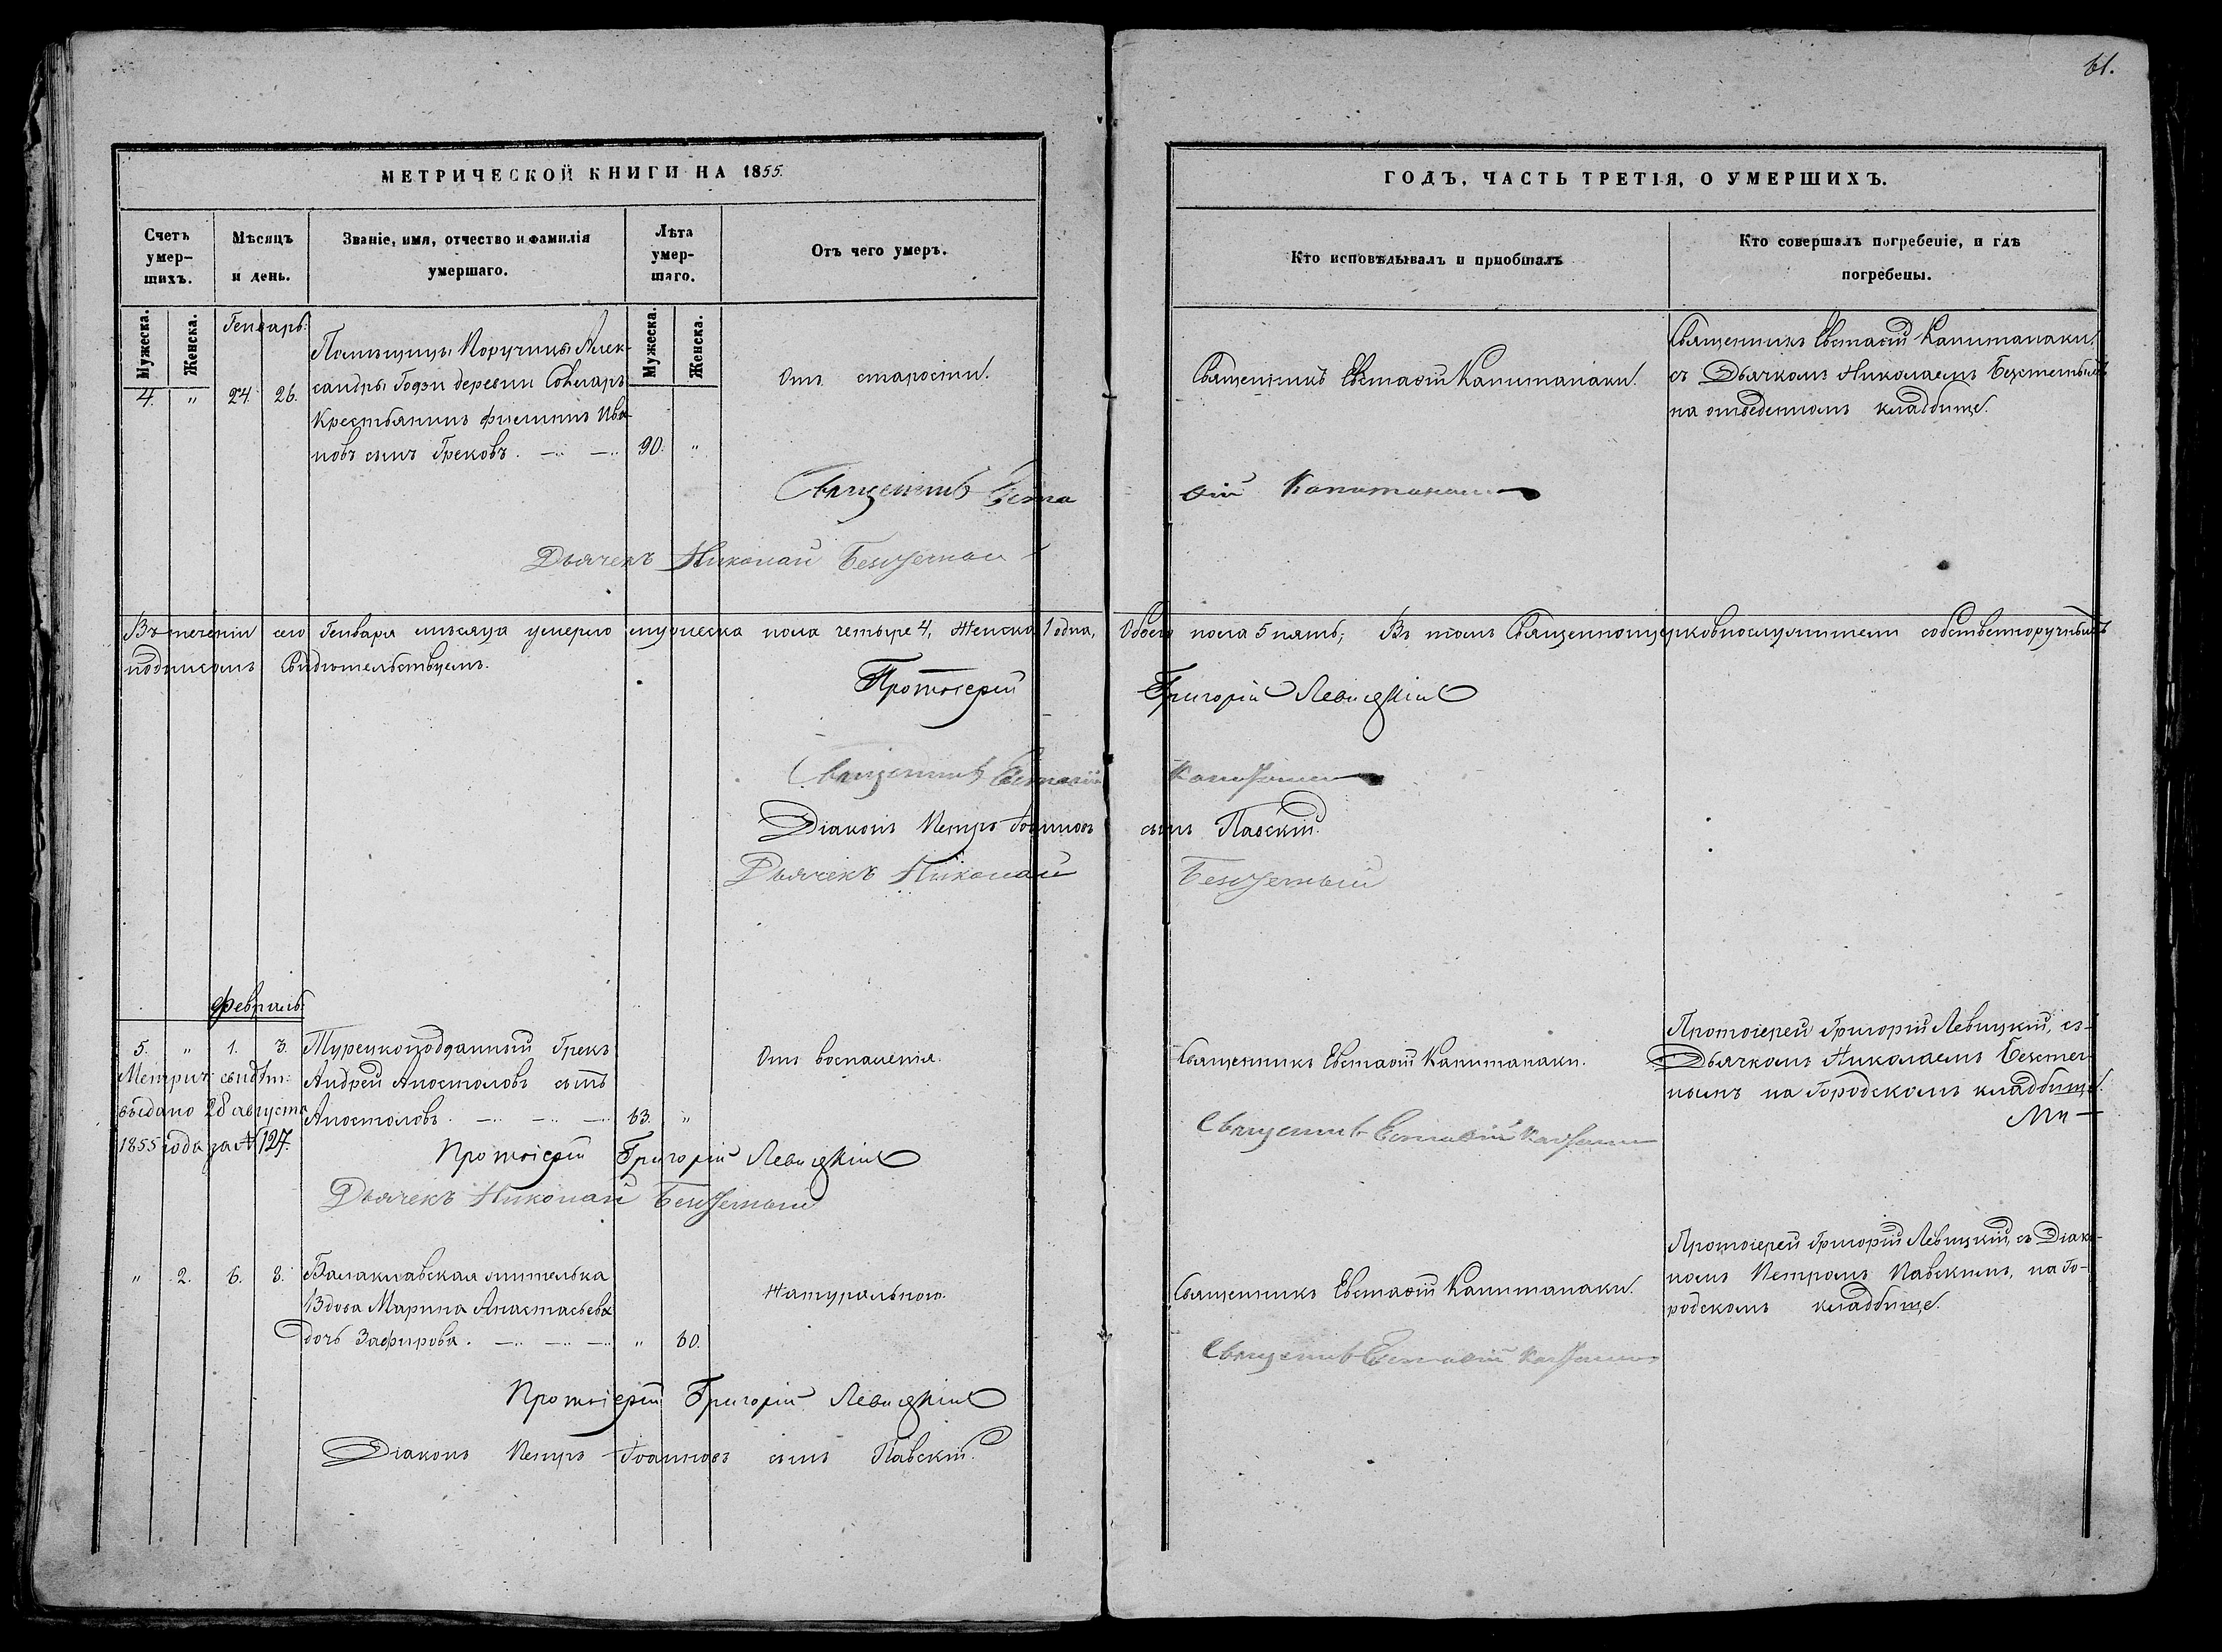 61.
МЕТРИЧЕСКОЙ КНИГИ НА 1855.
ГОДЪ, ЧАСТЬ ТРЕТІЯ, О УМЕРШИХЪ.
Счетъ умер-шихъ.
Мѣсяцъ и день.
Званіе, имя, отчество и фамилія умершаго.
Лѣта умер-шаго.
Отъ чего умеръ.
Кто исповѣдывалъ и пріобщалъ
Кто совершалъ погребеніе, и гдѣ погребены.
Мужеска.
Женска.
Мужеска.
Женска.
Генварь:
4. " 24. 26.
Помѣщицы Поручицы Алек-
сандры Гози деревни
Крестьянинъ Филиппъ Ива-
новъ сынъ Грековъ. 90. "
Отъ старости.
Священникъ Евстафій Капитанаки.
Священникъ Евстафій Капитанаки,
съ Дьячкомъ Николаемъ
на отведенномъ кладбищѣ.
Священникъ Евстафій Капитанаки
Дьячекъ Николай
Въ теченіи сего Генваря мѣсяца умерло мужеска пола четыре 4, Женска 1 одна, Обоего пола 5 пять; Въ томъ Священноцерковнослужители собственноручнымъ
подписомъ Свидѣтельствуемъ.
Протоіерей Григорій Левицкій
Священникъ Евстафій Капитанаки
Діаконъ Петръ Іоанновъ сынъ Павскій.
Дьячекъ Николай
Февраль:
5. " 1. 3.
Турецкоподданный Грекъ
Андрей Апостоловъ сынъ
Апостоловъ. 63. "
Метрич: свидѣт:
выдано 28 августа
1855 года за № 127.
Отъ воспаленія.
Священникъ Евстафій Капитанаки.
Протоіерей Григорій Левицкій, съ
Дьячкомъ Николаемъ
на Городскомъ кладбищѣ.
Священникъ Евстафій Капитанаки
Протоіерей Григорій Левицкій
Дьячекъ Николай
" 2. 6. 8.
Балаклавская жителька
Вдова Марина Анастасьева
дочь Зафирова. " 60.
Натурально.
Священникъ Евстафій Капитанаки.
Протоіерей Григорій Левицкій, съ Діако-
номъ Петромъ Павскимъ, на Го-
родскомъ кладбищѣ.
Священникъ Евстафій Капитанаки
Протоіерей Григорій Левицкій
Діаконъ Петръ Іоанновъ сынъ Павскій.